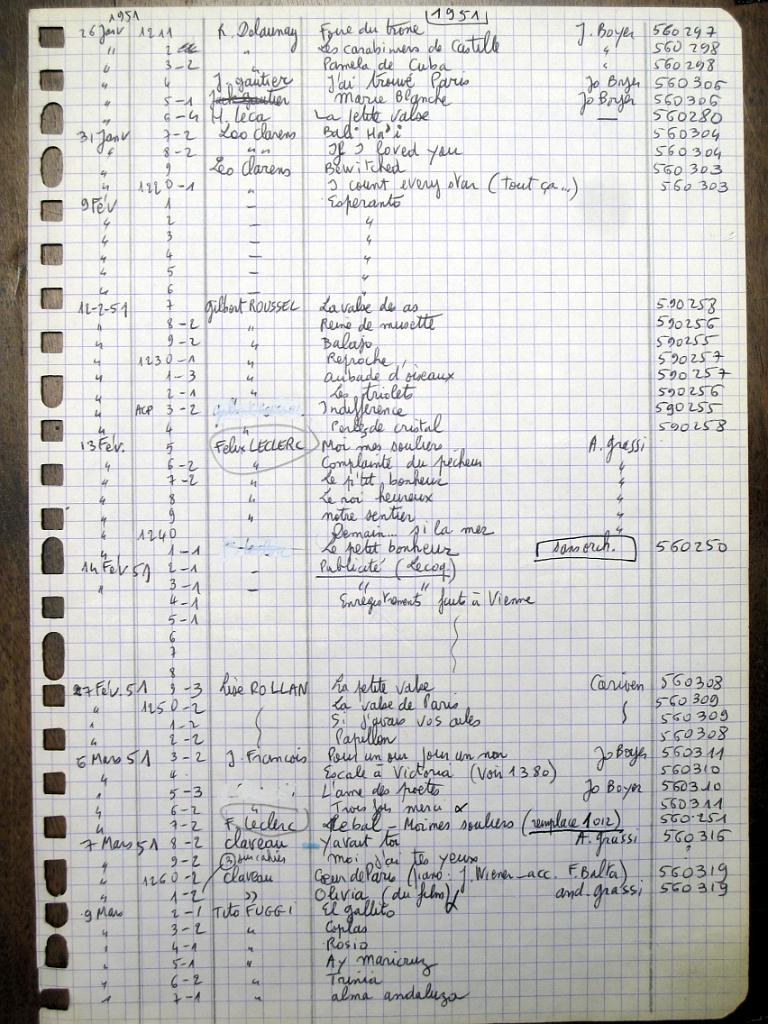 1951 1951
26 Janv 1211 R. Delaunay Foire du trone J. Boyer 560297
" 2 " Les carabiniers de Castille " 560 298
" 3-2 " Pamela de Cuba " 560298
" 4 J. gautier J'ai trouvé Paris Jo Boyer 560306
" 5-1 Marie Blanche Jo Boyer 560306
" 6-4 H. Leca La petite valse — 560280
31 Janv 7-2 Léo Clarens Bali Ha'i 560304
" 8-2 " " If I loved you 560304
" 9 Léo Clarens Bewitched 560303
" 1220-1 " I count every star (Tout ça...) 560303
9 Fév 1 — Esperanto
" 2 — "
" 3 — "
" 4 — "
" 5 — "
" 6 — "
12-2-51 7 Gilbert ROUSSEL La valse de as 590258
" 8-2 " Reine de musette 590256
" 9-2 " Balajo 590255
" 1230-1 " Reproche 590257
" 1-3 " aubade d'oiseaux 590257
" 2-1 " Les triolets 590256
" ACP 3-2 Indifférence 590255
" 4 " Perles de cristal 590258
13 Fév. 5 Felix LECLERC Moi mes souliers A. grassi
" 6-2 " Complainte du pêcheur "
" 7-2 " Le p'tit bonheur "
" 8 " Le roi heureux "
" 9 " notre sentier "
" 1240 Demain... si la mer "
" 1-1 Le petit bonheur sans orch. 560250
14 Fév 51 2-1 — Publicité (Lecoq)
" 3-1 — " "
4-1 Enregistrements faits à Vienne
5-1
6
7
8
27 Fév. 51 9-3 Lise ROLLAN La petite valse Cariven 560308
" 1250-2 La valse de Paris 560309
" 1-2 Si j'avais vos ailes 560309
" 2-2 Papillon 560308
6 Mars 51 3-2 J. François Pour un oui pour un non Jo Boyer 560311
" 4 Escale à Victoria (voir 1380) 560310
" 5-3 L'ame des poetes Jo Boyer 560310
" 6-2 " Trois fois merci 560311
" 7-2 F. Leclerc Le bal - Moi mes souliers (remplace 1012) 560.251
7 Mars 51 8-2 claveau Y avait toi A. grassi 560316
" 9-2 moi j'ai tes yeux ?
" 1260-2 Claveau Coeur de Paris (piano: J. Wiener - acc. F. Balta) 560319
" 1-2 " Olivia (du film) and. grassi 560319
9 Mars 2-1 Tito FUGGI El gallito
" 3-2 " Coplas
" 4-1 " Rosio
" 5-1 " Ay maricruz
" 6-2 " Trinia
" 7-1 " alma andaluza